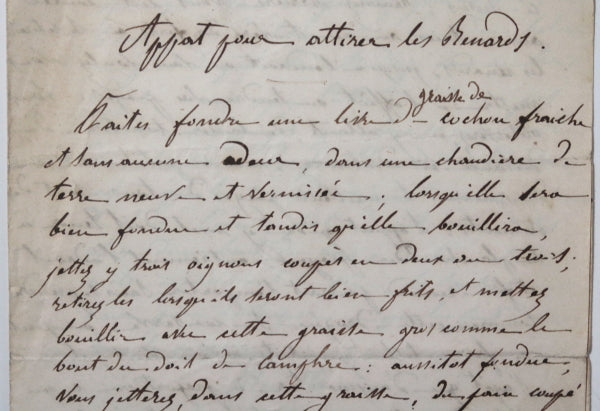 Appat pour attirer les Renards.
graisse de
Faites fondre une livre de cochon fraiche
et sans aucune odeur, dans une chaudiere de
terre neuve et vernissée ; lorsqu'elle sera
bien fondue et tandis qu'elle bouillira,
jettez y trois oignons coupés en deux ou trois;
retirez les lorsqu'ils seront bien frits, et mettez
bouillir avec cette graisse gros comme le
bout du doit de camphre : aussitot fondue,
vous jetterez, dans cette graisse, du pain coupé